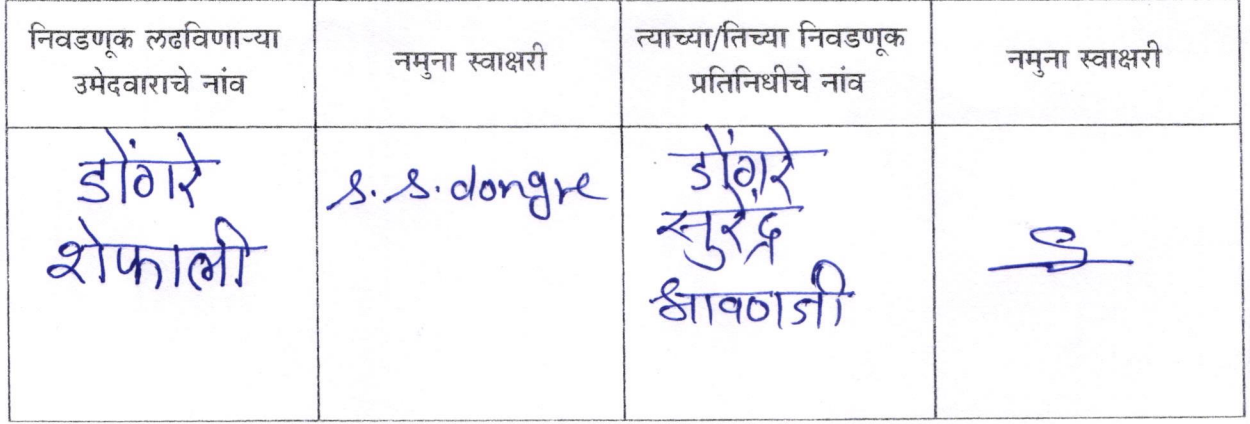 निवडणूक लढविणाऱ्या
उमेदवाराचे नांव
नमुना स्वाक्षरी
त्याच्या/तिच्या निवडणूक
प्रतिनिधीचे नांव
नमुना स्वाक्षरी
डोंगरे
शेफाली
s. s. dongre
डोंगरे
सुरेंद्र
श्रावणजी